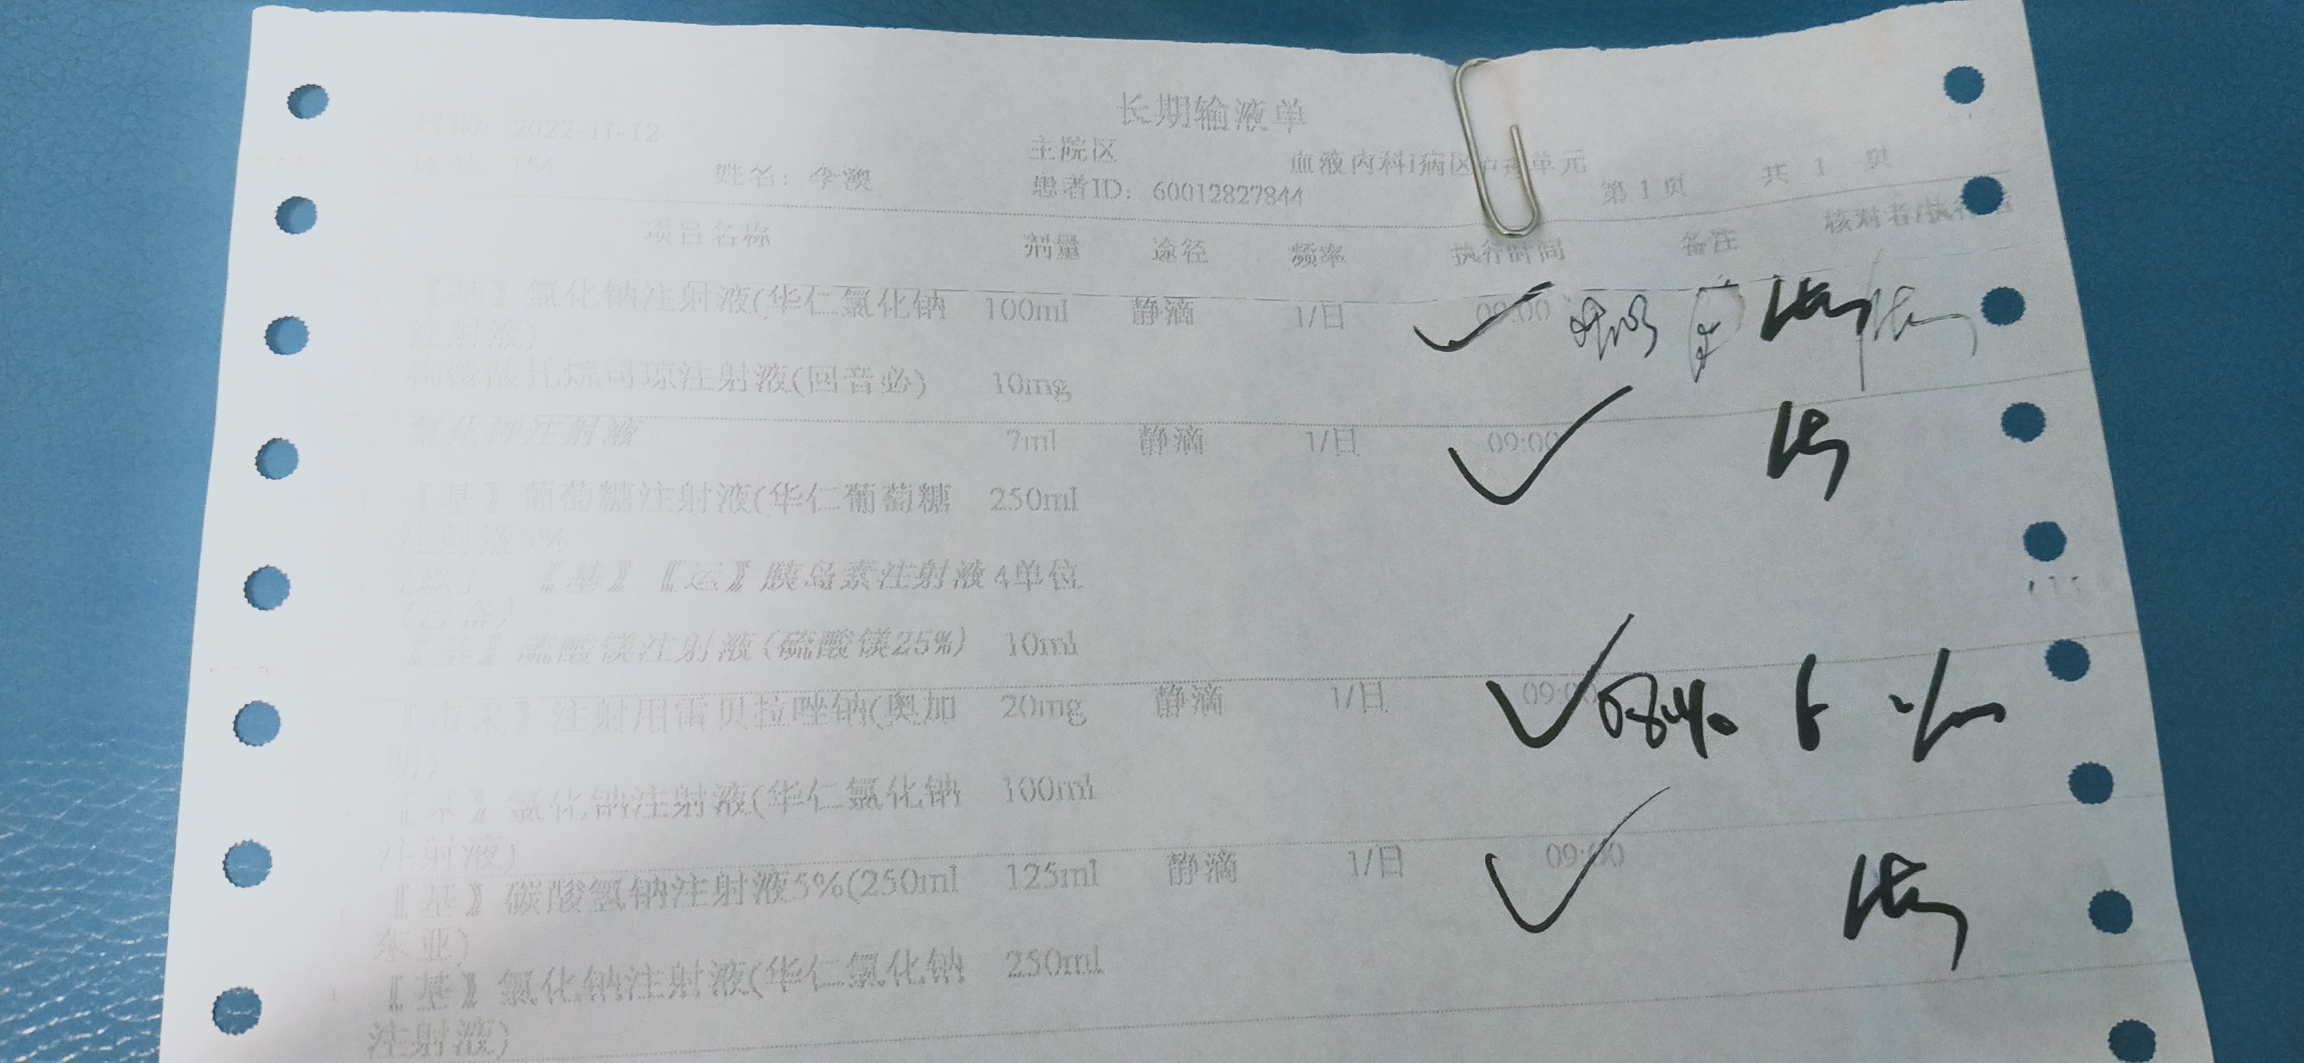 长期输液单
日期：2022-11-12 主院区 血液内科I病区护理单元
床号：154 姓名：李澳 患者ID：60012827844 第1页 共 1 页
项目名称 剂量 途径 频率 执行时间 备注 核对者/执行者
【基】氯化钠注射液(华仁氯化钠 100ml 静滴 1/日 09:00
注射液)
枸橼酸托烷司琼注射液(回音必) 10mg
氯化钾注射液 7ml 静滴 1/日 09:00
【基】葡萄糖注射液(华仁葡萄糖 250ml
注射液5%
【基】【运】胰岛素注射液 4单位
【基】硫酸镁注射液(硫酸镁25%) 10ml
注射用雷贝拉唑钠(奥加 20mg 静滴 1/日 09:00
明)
【基】氯化钠注射液(华仁氯化钠 100ml
注射液)
【基】碳酸氢钠注射液5%(250ml 125ml 静滴 1/日 09:00
东亚)
【基】氯化钠注射液(华仁氯化钠 250ml
注射液)